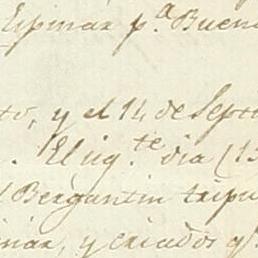 Espinar p.ª Buen
to, y el 14 de Sept
. El sig.te dia (15
l Bergantin tripu
inar, y criados q